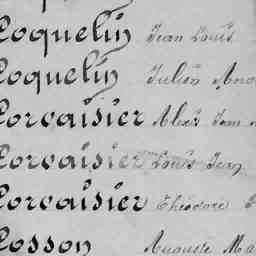 Coquelin Jean Louis
Coquelin Julien
Corvaisier Alexis Jean
Corvaisier Louis Jean
Corvaisier Théodore
Cosson Auguste Ma